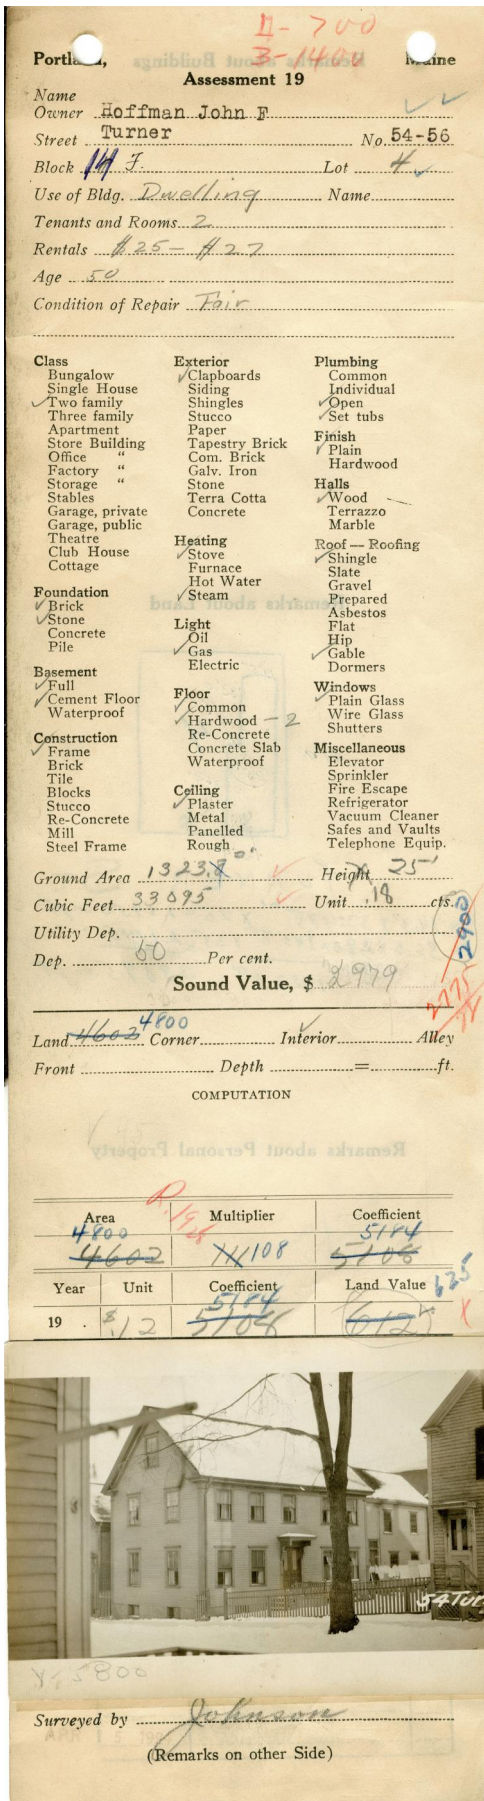 D- 700
B- 1400
Portland, Maine
Assessment 19
Name
Owner Hoffman John F
Street Turner No. 54-56
Block 14 F. Lot 4
Use of Bldg. Dwelling Name
Tenants and Rooms 2
Rentals $25- $27
Age 50
Condition of Repair Fair
Class
Bungalow
Single House
✓Two family
Three family
Apartment
Store Building
Office "
Factory "
Storage "
Stables
Garage, private
Garage, public
Theatre
Club House
Cottage
Foundation
✓Brick
✓Stone
Concrete
Pile
Basement
✓Full
✓Cement Floor
Waterproof
Construction
✓Frame
Brick
Tile
Blocks
Stucco
Re-Concrete
Mill
Steel Frame
Exterior
✓Clapboards
Siding
Shingles
Stucco
Paper
Tapestry Brick
Com. Brick
Galv. Iron
Stone
Terra Cotta
Concrete
Heating
✓Stove
Furnace
Hot Water
✓Steam
Light
✓Oil
✓Gas
Electric
Floor
✓Common
✓Hardwood - 2
Re-Concrete
Concrete Slab
Waterproof
Ceiling
✓Plaster
Metal
Panelled
Rough
Plumbing
Common
Individual
✓Open
✓Set tubs
Finish
✓Plain
Hardwood
Halls
✓Wood
Terrazzo
Marble
Roof — Roofing
✓Shingle
Slate
Gravel
Prepared
Asbestos
Flat
Hip
✓Gable
Dormers
Windows
✓Plain Glass
Wire Glass
Shutters
Miscellaneous
Elevator
Sprinkler
Fire Escape
Refrigerator
Vacuum Cleaner
Safes and Vaults
Telephone Equip.
Ground Area 1323.8 Height 25'
Cubic Feet 33095 Unit .18 cts.
2900
Utility Dep.
Dep. 50 Per cent.
Sound Value, $ 2979
2775
Land 4602 4800 Corner Interior ✓ Alley
Front Depth = ft.
COMPUTATION
Area Multiplier Coefficient
4800 5184
4602 111 108 5108
Year Unit Coefficient Land Value 625
5184
19 . $.12 5108 612
54 Tur
Y-5800
Surveyed by Johnson
(Remarks on other Side)